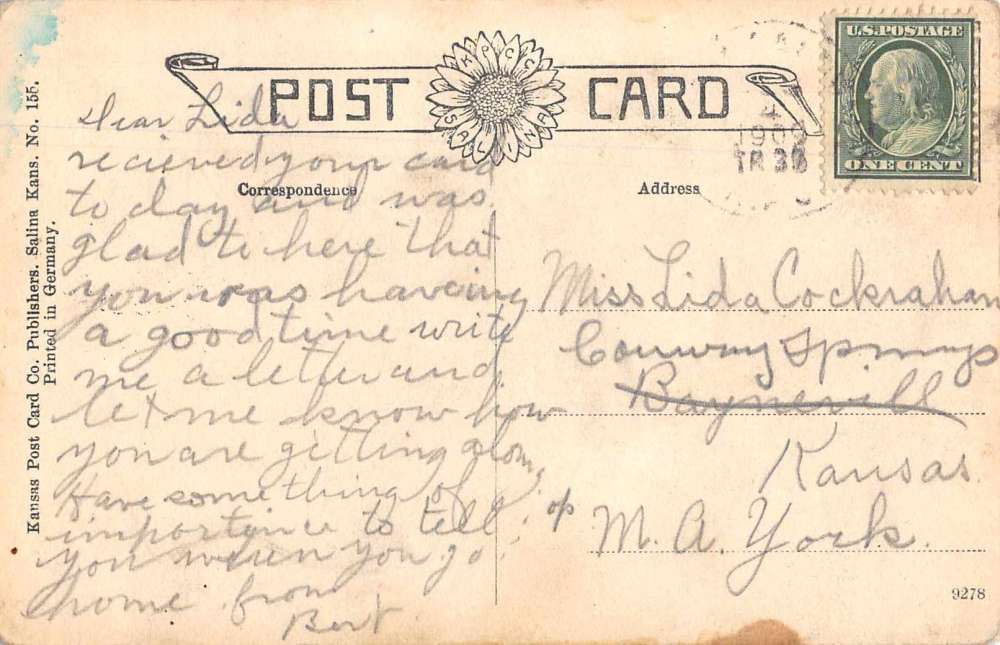 Kansas Post Card Co. Publishers. Salina Kans. No. 155.
Printed in Germany.
POST CARD
K.P.C.CO.
SALINA
Correspondence
Address
U.S. POSTAGE
ONE CENT
4
1909
Dear Lida
recieved your card
to day and was
glad to here that
you was haveing
a good time write
me a letter and
let me know how
you are getting along
Have something of
importance to tell
you when you go
home from
Bert
Miss Lida Cockraham
Conway Springs
Baynevill
Kansas
M. A. York.
9278